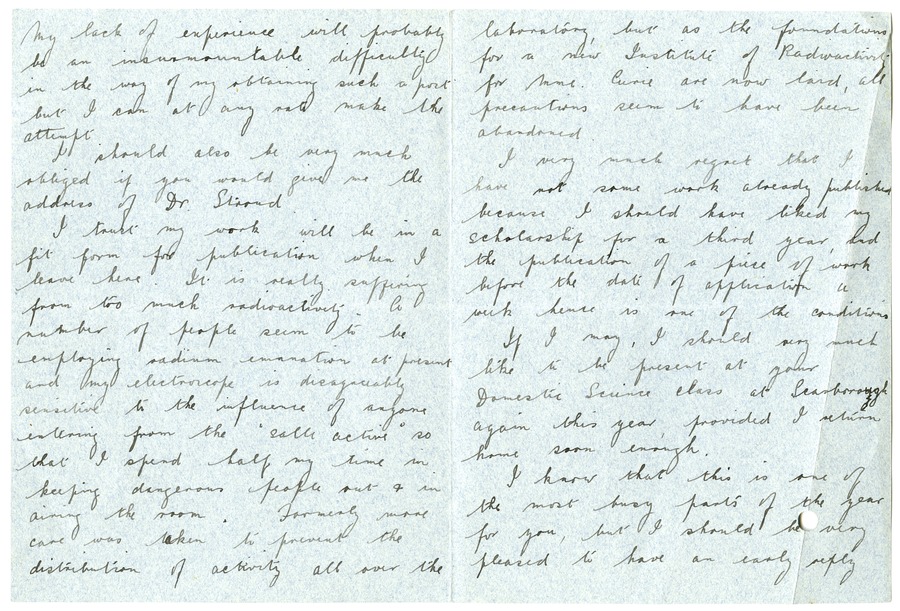 My lack of experience will probably
be an insurmountable difficulty
in the way of my obtaining such a post
but I can at any rate make the
attempt
I should also be very much
obliged if you would give me the
address of Dr. Stroud
I trust my work will be in a
fit form for publication when I
leave here. It is really suffering
from too much radioactivity. A
number of people seem to be
employing radium emanation at present
and my electroscope is disagreeably
sensitive to the influence of anyone
entering from the "salle active" so
that I spend half my time in
keeping dangerous people out & in
airing the room. Formerly more
care was taken to prevent the
distribution of activity all over the
laboratory, but as the foundations
for a new Institute of Radioactivity
for Mme. Curie are now laid, all
precautions seem to have been
abandoned
I very much regret that I
have not some work already published
because I should have liked my
scholarship for a third year, and
the publication of a piece of work
before the date of application a
week hence is one of the conditions
If I may, I should very much
like to be present at your
Domestic Science class at Scarborough
again this year, provided I return
home soon enough.
I know that this is one of
the most busy parts of the year
for you, but I should be very
pleased to have an early reply